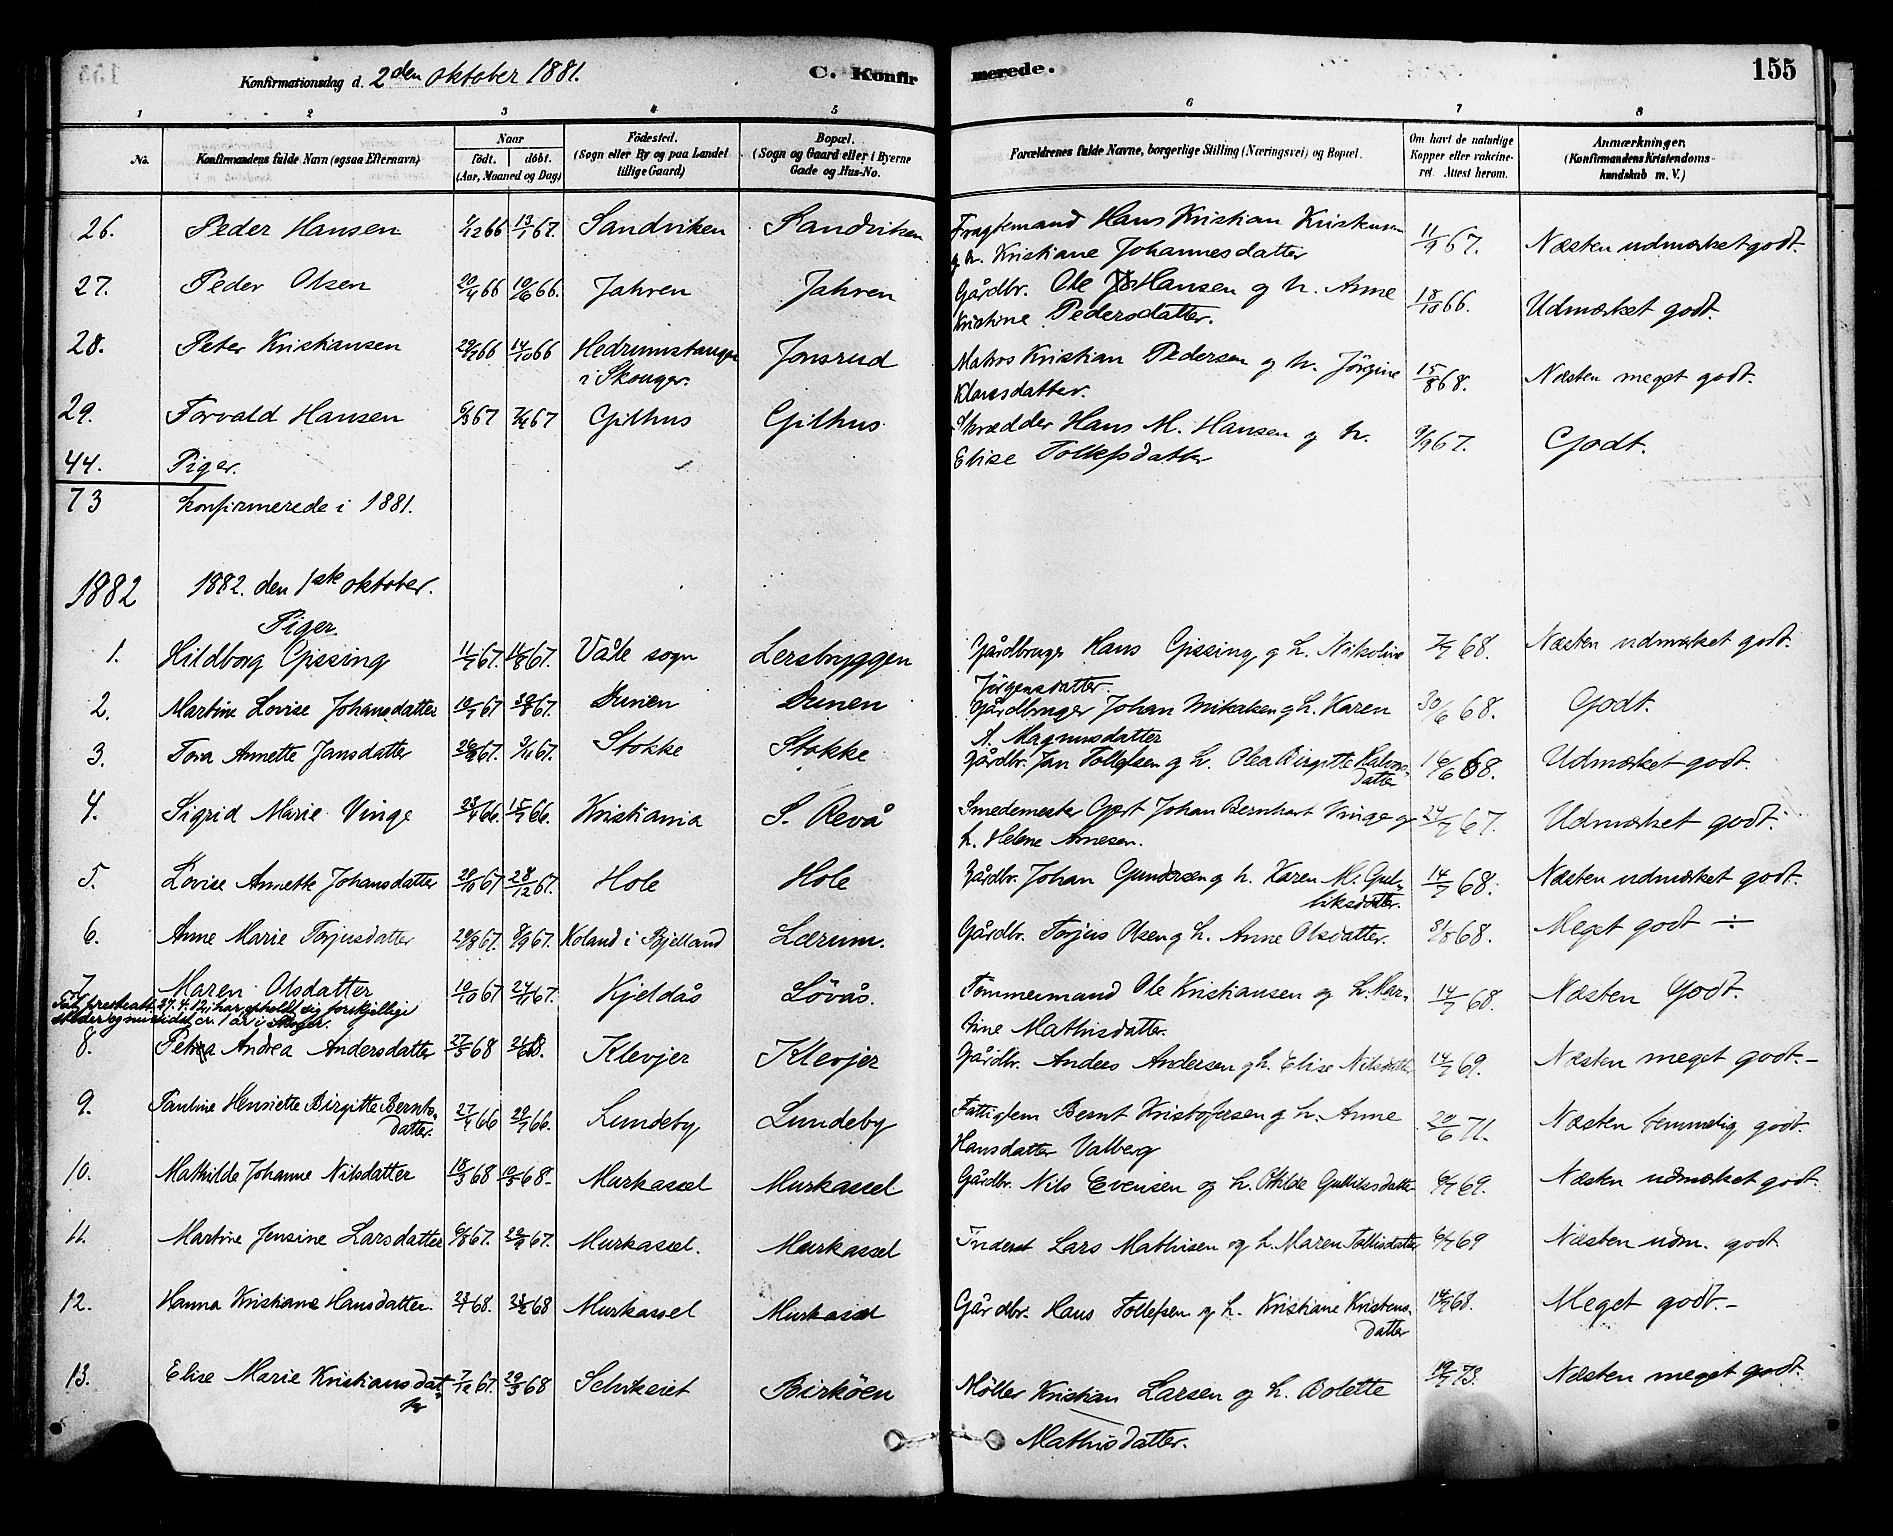 Konfirmationsdag d. 2den oktober 1881. C. Konfirmerede. 155
1 2 3 4 5 6 7 8
No. Konfirmandens fulde Navn (ogsaa Efternavn) Naar født. døbt. (Aar, Maaned og Dag) Födested. (Sogn eller By og paa Landet tillige Gaard) Bopæl. (Sogn og Gaard eller i Byerne Gade og Hus-No.) Forældrenes fulde Navne, borgerlige Stilling (Næringsvei) og Bopæl. Om havt de naturlige Kopper eller vakcineret. Attest herom. Anmærkninger. (Konfirmandens Kristendomskundskab m. V.)
26. Peder Hansen 1/12 66 13/1 67. Sandviken Sandviken Fragtemand Hans Kristian Kristensen 11/9 67. Næsten udmærket godt.
g h. Kristiane Johannesdatter
27. Peder Olsen 20/4 66 10/6 66. Jahren Jahren Gårdbr. Ole Hansen g h. Anne 18/10 66. Udmærket godt.
Kristine Pedersdatter.
28. Peter Kristiansen 29/7 66 14/10 66 Hedrumstangen Jonsrud Matros Kristian Pedersen og h. Jørgine 15/8 68. Næsten meget godt.
i Skouger. Klausdatter.
29. Torvald Hansen 6/3 67 7/4 67 Gilhus Gilhus. Skrædder Hans M. Hansen g h. 9/9 67. Godt.
Elise Tollefsdatter
44. Piger.
73 konfirmerede i 1881.
1882 1882. den 1ste oktober.
Piger
1. Hildborg Gissing 11/7 67. 11/8 67. Våle sogn Lersbryggen Gårdbruger Hans Gissing, g h. Nikoline 7/7 68. Næsten udmærket godt.
Jørgensdatter.
2. Martine Lovise Johansdatter 10/7 67 Dunen Dunen Gårdbruger Johan Mikalsen g h. Karen 30/6 68. Godt.
A. Magnusdatter
3. Tora Annette Jansdatter 26/9 67. 3/11 67. Stokke Stokke Gårdbr. Jan Tollefsen g h. Olea Birgitte Halvors- 16/6 68. Udmærket godt.
datter
4. Sigrid Marie Vinge 23/4 66. 15/7 66. Kristiania S. Revå Smedemester Gjert Johan Bernhart Vinge og 24/7 67. Udmærket godt.
h. Helene Arnesen.
5. Lovise Annette Johansdatter 28/10 67 28/12 67. Hole Hole Gårdbr. Johan Gundersen g h. Karen M. Gul- 14/7 68. Næsten udmærket godt.
liksdatter.
6. Anne Marie Torjusdatter 29/8 67. 8/9 67. Koland i Bjelland Lærum. Gårdbr. Torjus Olsen g h. Anne Olsdatter. 31/8 68. Meget godt ÷
7 Maren Olsdatter 10/10 67 24/11 67. Kjeldås Løvås. Tømmermand Ole Kristiansen og h. Mar- 14/7 68. Næsten Godt.
27.4.12: har opholdt sig forskjellige tine Mathisdatter.
steder og nu sidst ca. 1 år i Skoger.
8. Petra Andrea Andersdatter 27/3 68 Klevjer Klevjer Gårdbr. Anders Andersen g h. Elise Nilsdatter 14/7 69. Næsten meget godt.-
9. Pauline Henriette Birgitte Bernts- 27/4 66 29/7 66. Lundeby Lundeby Fattiglem Bernt Kristofersen g h. Anne 20/6 71. Næsten temmelig godt.
datter. Hansdatter Valberg
10. Mathilde Johanne Nilsdatter 18/3 68 10/5 68- Murkasæl Murkasæl Gårdbr. Nils Evensen og h. Otilde Gulliksdatter 6/7 69. Næsten udmærket godt.
11. Martine Jensine Larsdatter 6/8 67. 22/9 67. Murkasæl. Murkasæl Inderst Lars Mathisen og h. Maren Tollefsdatter 6/7 69 Næsten udm. godt
12. Hanna Kristiane Hansdatter. 23/1 68. 23/2 68 Murkasæl Murkasæl Gårdbr. Hans Tollefsen g h. Kristiane Kristens- 14/7 68. Meget godt.-
datter
13. Elise Marie Kristiansdat- 7/12 67. 29/3 68 Selvikeiet Birkøen Møller Kristian Larsen og h. Bolette 19/7 73. Næsten meget godt.
ter Mathisdatter.